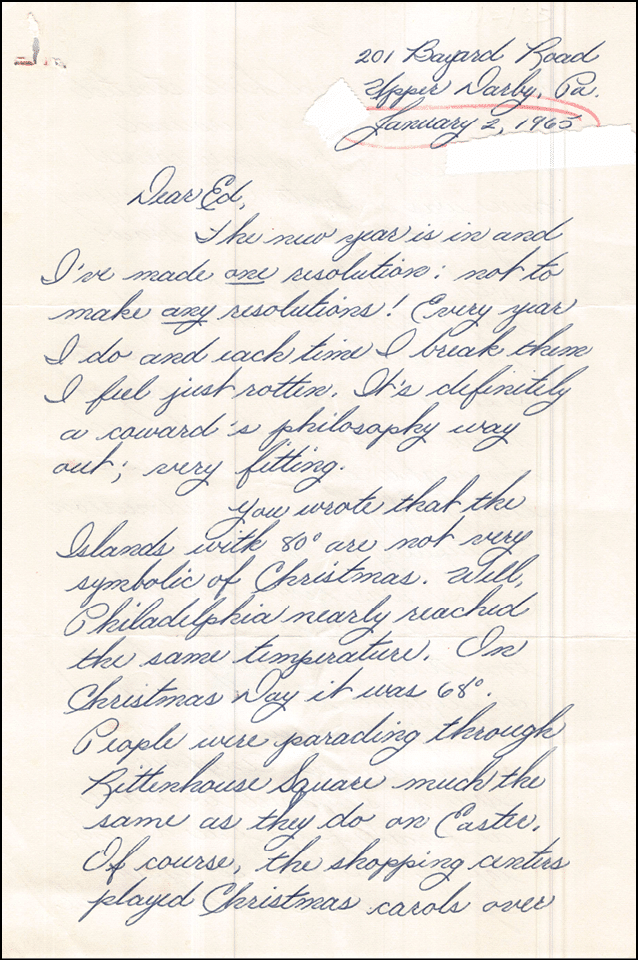 201 Bayard Road
Upper Darby, Pa.
January 2, 1965
Dear Ed,
The new year is in and
I've made one resolution: not to
make any resolutions! Every year
I do and each time I break them
I feel just rotten. It's definitely
a coward's philosophy way
out; very fitting.
You wrote that the
Islands with 80° are not very
symbolic of Christmas. Well,
Philadelphia nearly reached
the same temperature. On
Christmas Day it was 68°.
People were parading through
Rittenhouse Square much the
same as they do on Easter.
Of course, the shopping centers
played Christmas carols over